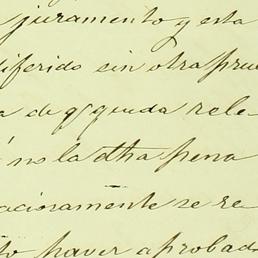 juramento y esta
diferido sin otra prue
a de q.e queda rele
no la dha pena
aciosamente se re
to haver aprobado